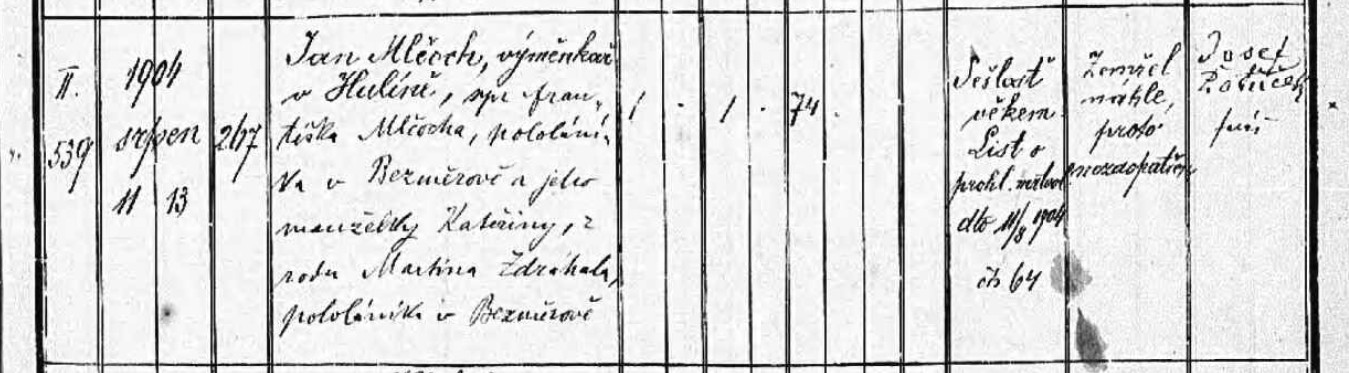 II.
539
1904
srpen
11 13
267
Jan Mlčoch, výměnkář
v Hulíně, syn Fran-
tiška Mlčocha, pololání-
ka v Bezměrově a jeho
manželky Kateřiny, z
rodu Martina Zdráhala,
pololáníka v Bezměrově
1 . 1 . 74 .
Sešlosť
věkem
List o
prohl. mrtvol
dto 11/8 1904
čís 64
Zemřel
náhle,
proto
nezaopatřen
Josef
farář